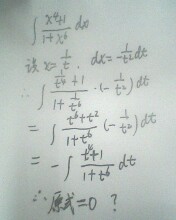 ∫ (x⁴+1)/(1+x⁶) dx
设 x = 1/t. dx = -1/t² dt
∴ ∫ (1/t⁴ + 1)/(1 + 1/t⁶) · (-1/t²) dt
= ∫ (t⁶+t²)/(1+t⁶) (-1/t²) dt
= -∫ (t⁴+1)/(1+t⁶) dt
∴ 原式 = 0 ?